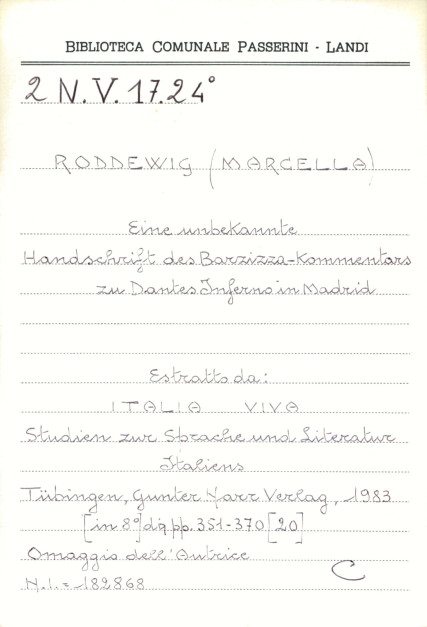 BIBLIOTECA COMUNALE PASSERINI - LANDI
2 N.V. 17.24°
RODDEWIG (MARCELLA)
Eine unbekannte
Handschrift des Barzizza-Kommentars
zu Dantes Inferno in Madrid
Estratto da:
ITALIA VIVA
Studien zur Sprache und Literatur
Italiens
Tübingen, Gunter Narr Verlag, 1983
[in 8°] di pp. 351-370 [20]
Omaggio dell'Autrice
N.i. = 182868
C